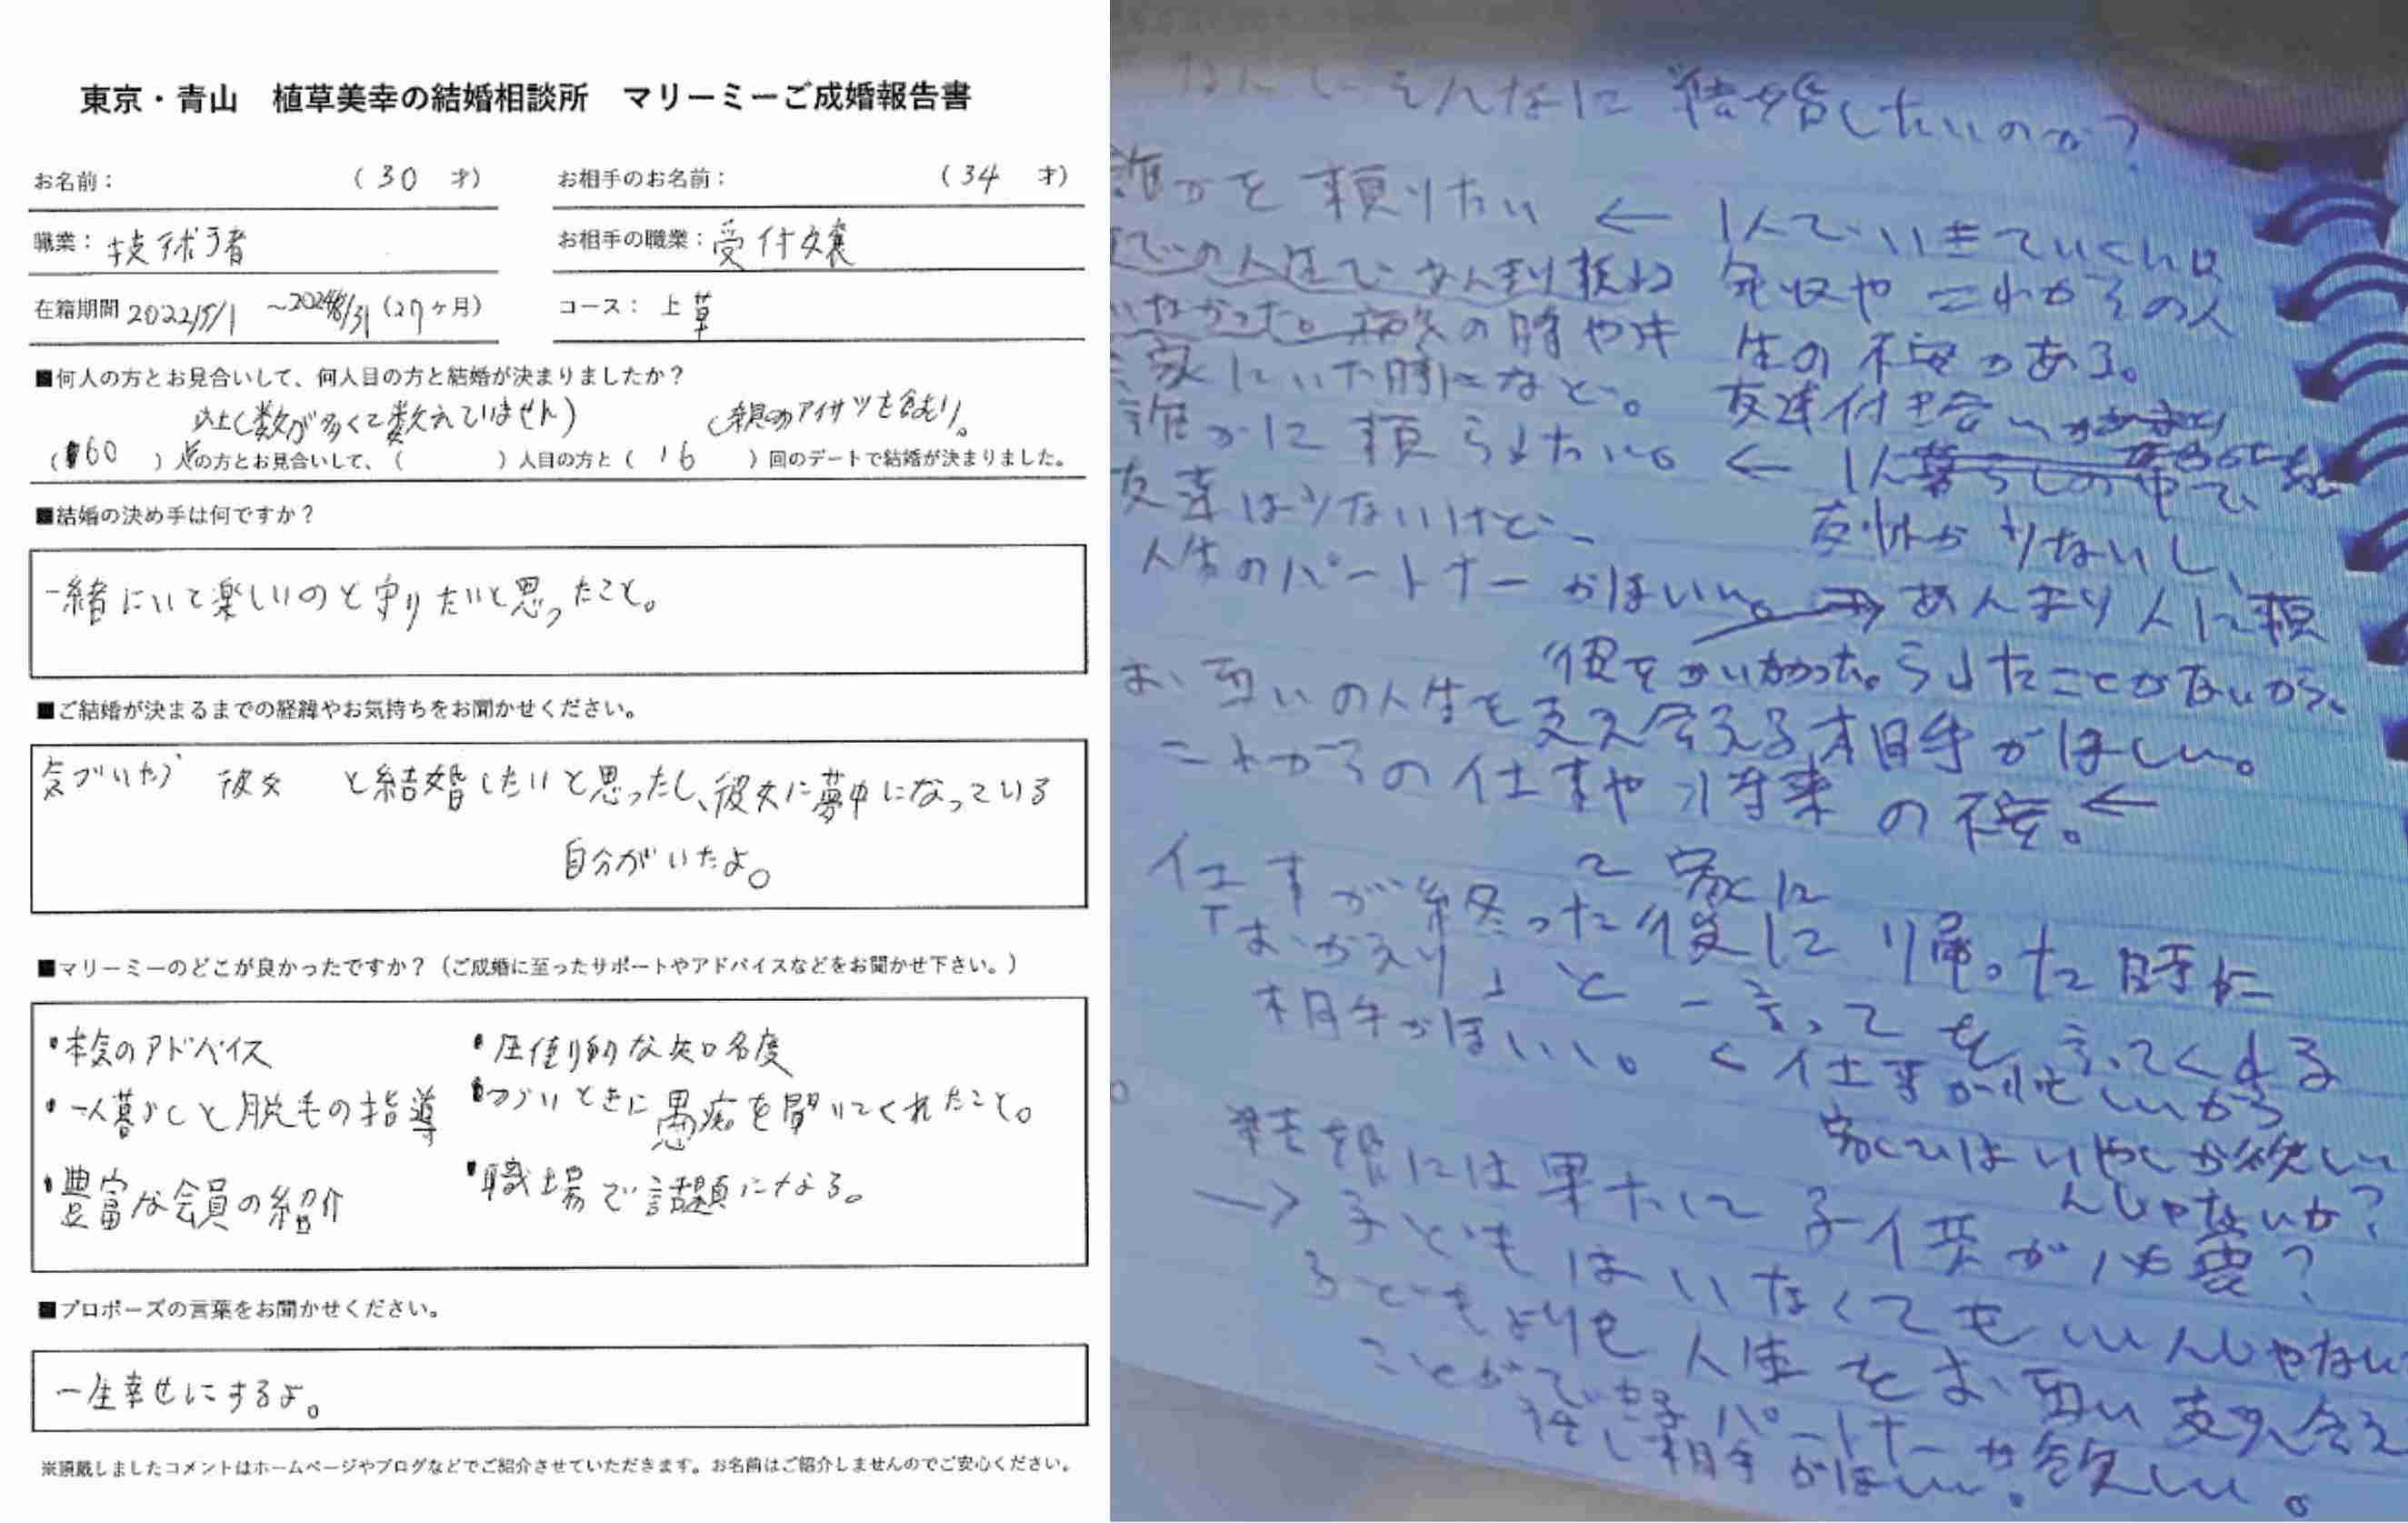 東京・青山　植草美幸の結婚相談所　マリーミーご成婚報告書
お名前：　（30 才）
お相手のお名前：　（34 才）
職業：技術者
お相手の職業：受付嬢
在籍期間 2022/5/1 ～2024/8/31（27ヶ月）
コース：上草
■何人の方とお見合いして、何人目の方と結婚が決まりましたか？
以上（数が多くて数えていません）　（親のアイサツを含む）。
（60　）人の方とお見合いして、（　　）人目の方と（16　）回のデートで結婚が決まりました。
■結婚の決め手は何ですか？
一緒にいて楽しいのと守りたいと思ったこと。
■ご結婚が決まるまでの経緯やお気持ちをお聞かせください。
気づいたら 彼女 と結婚したいと思ったし、彼女に夢中になっている
自分がいたよ。
■マリーミーのどこが良かったですか？（ご成婚に至ったサポートやアドバイスなどをお聞かせ下さい。）
・本気のアドバイス
・一人暮らしと脱毛の指導
・豊富な会員の紹介
・圧倒的な知名度
・つらいときに愚痴を聞いてくれたこと。
・職場で話題になる。
■プロポーズの言葉をお聞かせください。
一生幸せにするよ。
※頂戴しましたコメントはホームページやブログなどでご紹介させていただきます。お名前はご紹介しませんのでご安心ください。
なんでそんなに結婚したいのか？
誰かを頼りたい ←
での人生であんまり頼れ
いなかった。病気の時や
家にいた時になど。
誰かに頼られたい。 ←
友達は少ないけど、
人生のパートナーがほしい。
1人でいきていくんは
年収やこれからの人
生の不安がある。
友達付き合い
1人暮らしの中で、
友達が少ないし、
→ あんまり人に頼
られたことがないから。
お互いの人生を支え合える相手がほしい。
これからの仕事や将来の不安。←
仕事が終った後に家に帰った時に
「おかえり」と言ってくれる
相手がほしい。＜仕事が忙しいから
家ではいやしが欲しい
んじゃないか？
結婚には果たして子供が必要？
→ 子どもはいなくてもいいんじゃない
子どもよりも人生をお互い支え合え
ことができるパートナーが欲しい。
相手がほしい。